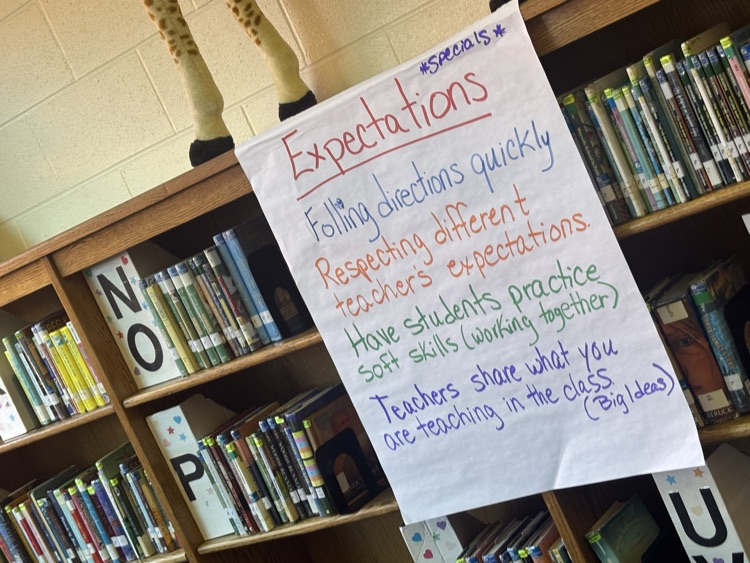 *Specials*
Expectations
Folling directions quickly
Respecting different
teacher's expectations.
Have students practice
soft skills (working together)
Teachers share what you
are teaching in the class.
(Big Ideas)
N
O
P
U
STRUCK